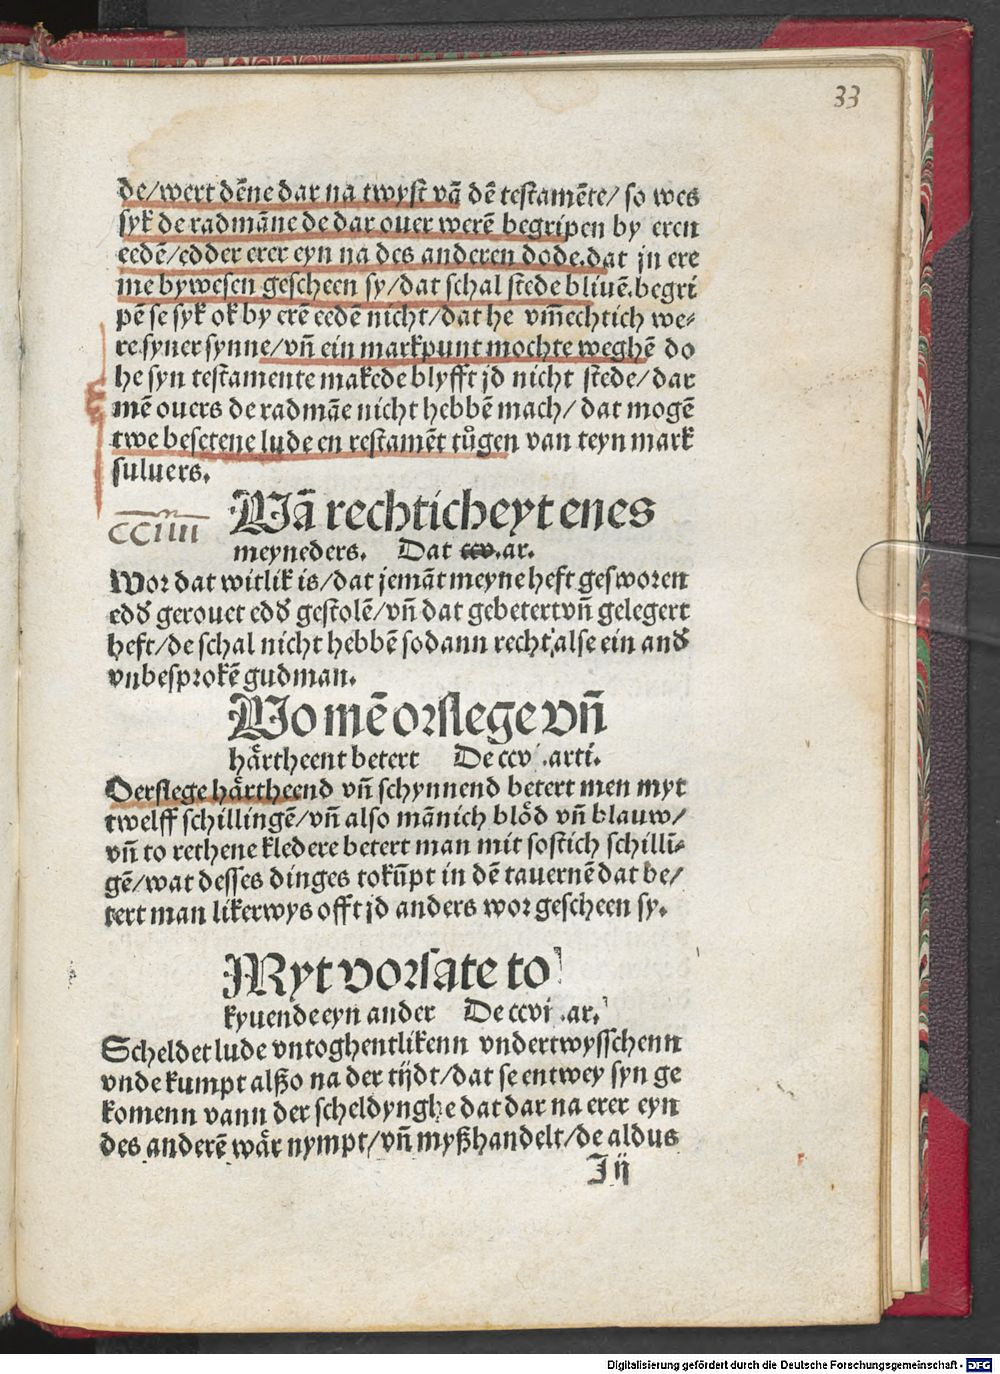 33
de/wert dēne dar na twyst vā dē testamēte/ so wes
syk de radmāne de dar ouer werē begripen by eren
eedē/edder erer eyn na des anderen dode.dat jn ere
me bywesen gescheen sy/dat schal stede bliuē.begri
pē se syk ok by erē eedē nicht/dat he vm̄echtich we⸗
re.syner synne/vn̄ ein markpunt mochte weghē do
he syn testamente makede blyfft jd nicht stede/dar
mē ouers de radmāe nicht hebbē mach/ dat mogē
twe besetene lude en restamēt tůgen van teyn mark
suluers.
Vā rechticheyt enes
CCIIII
meyneders. Dat ccv.ar.
Wor dat witlik is/dat jemāt meyne heft gesworen
edď gerouet edď gestolē/vn̄ dat gebetert vn̄ gelegert
heft/de schal nicht hebbē sodann recht alse ein anď
vnbesprokē gudman.
Wo mē orslege vn̄
hårtheent betert De ccv .arti.
Oerslege hårtheend vn̄ schynnend betert men myt
twelff schillingē/vn̄ also mānich blōd vn̄ blauw/
vn̄ to rethene kledere betert man mit sostich schillī⸗
gē/wat desses dinges tokūpt in dē tauernē dat be/
tert man likerwys offt jd anders wor gescheen sy.
Myt vorsate to
kyuende eyn ander De ccvi .ar.
Scheldet lude vntoghentlikenn vndertwysschenn
vnde kumpt alßo na der tijdt/dat se entwey syn ge
komenn vann der scheldynghe dat dar na erer eyn
des anderē wår nympt/vn̄ myßhandelt/de aldus
J ij
Digitalisierung gefördert durch die Deutsche Forschungsgemeinschaft - DFG